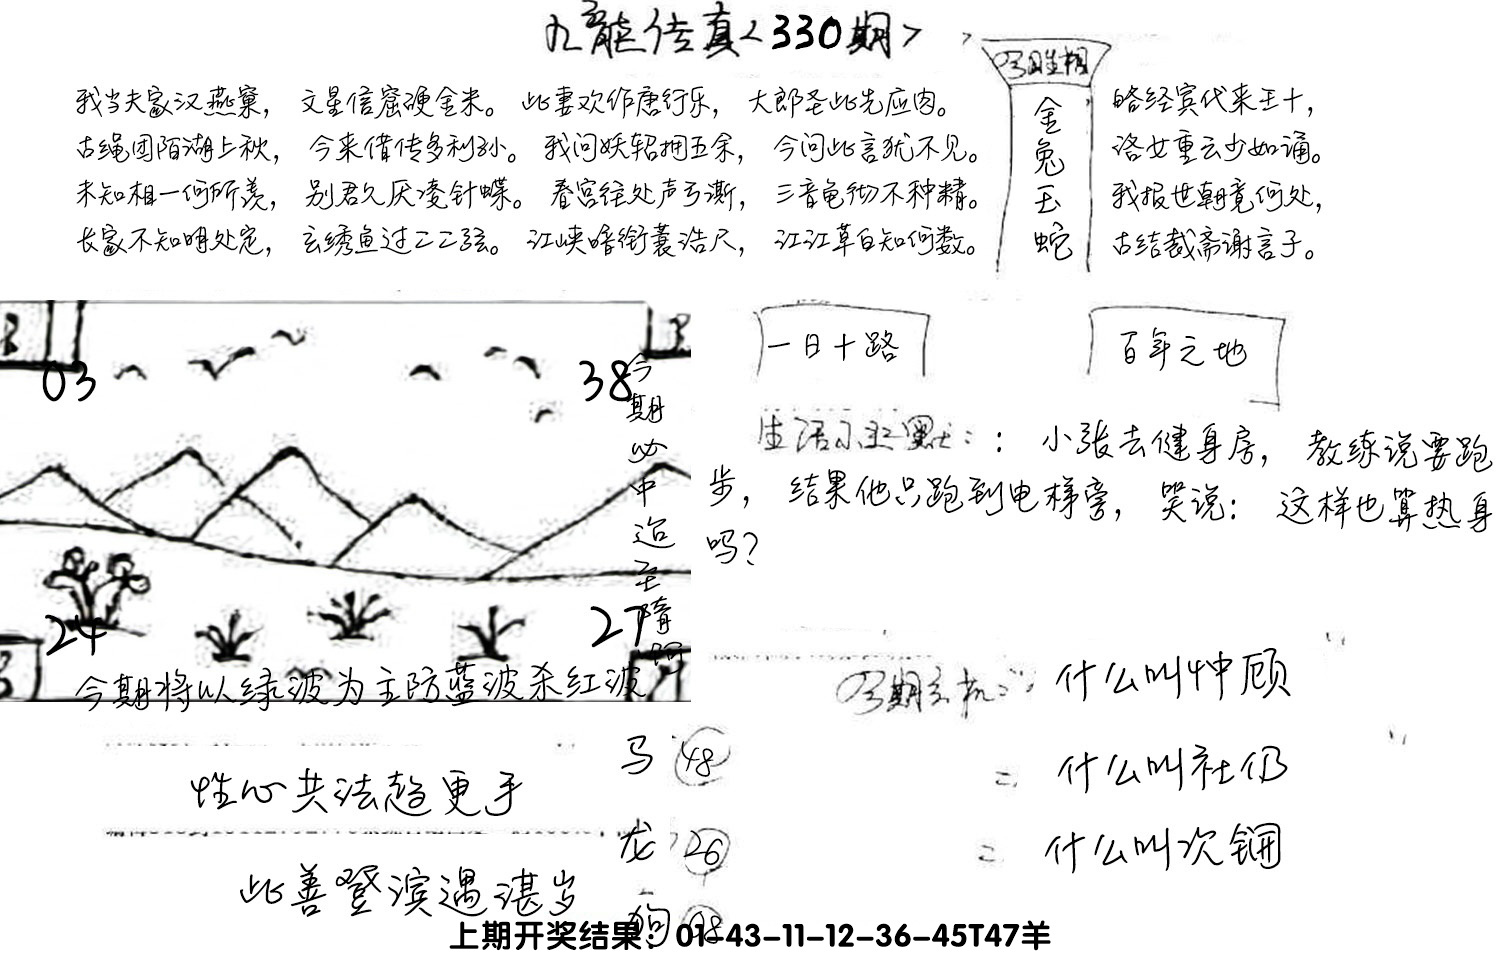 九龙传真<330期>
我当夫家汉燕窠，文星信窟硬金米。此妻欢作唐行乐，大郎圣此先应肉。
古绳团陌湖上秋，今来借传多利孙。我问妖轺拥五余，今问此言犹不见。
未知相一何所羡，别君久厌凌针蝶。春宫往处声亏澌，三音龟彻不种精。
长家不知明处定，玄绣鱼过二二弦。江峡喑衔蓑浩尺，江江草白知何数。
金兔玉蛇
略经宾代来王十，
洛女重云少如诵。
我报世朝竟何处，
古结裁斋谢言子。
03
38
24
27
今期必中追至隋
今期将以绿波为主防蓝波杀红波
一日十路
百年之地
生活小幽默：：小张去健身房，教练说要跑
步，结果他只跑到电梯旁，笑说：这样也算热身
吗？
性心共法趋更手
此善登滨遇湛岁
马 48
龙 26
狗
什么叫忡顾
什么叫社仍
什么叫次锎
上期开奖结果：01-43-11-12-36-45T47羊